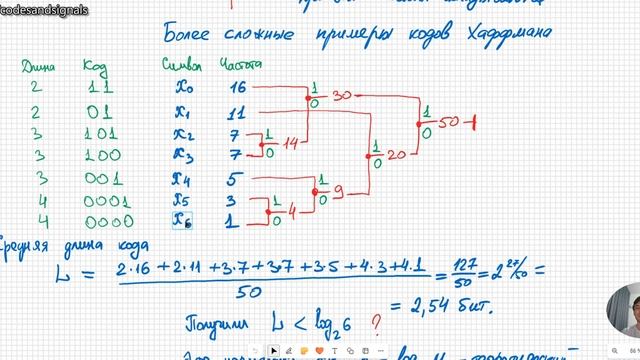 codesandsignals
Более сложные примеры кодов Хаффмана
Длина Код Символ Частота
2 11 x₀ 16
2 01 x₁ 11
3 101 x₂ 7
3 100 x₃ 7
3 001 x₄ 5
4 0001 x₅ 3
4 0000 x₆ 1
1 0 30
1 0 14
1 0 20
1 0 50
1 0 9
1 0 4
Средняя длина кода
L = (2·16+2·11+3·7+3·7+3·5+4·3+4·1)/50 = 127/50 = 2 27/50 =
= 2,54 бит.
Получили L < log₂6 ?